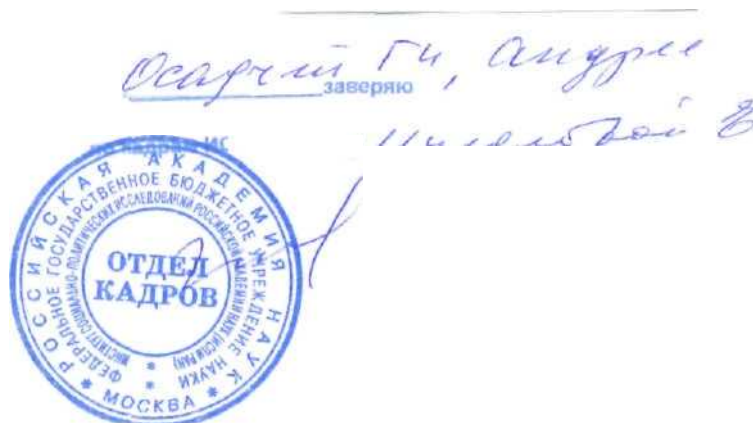 Осадчей Г.И., Андрее
заверяю
РОССИЙСКАЯ АКАДЕМИЯ НАУК
ФЕДЕРАЛЬНОЕ ГОСУДАРСТВЕННОЕ БЮДЖЕТНОЕ УЧРЕЖДЕНИЕ НАУКИ
ИНСТИТУТ СОЦИАЛЬНО-ПОЛИТИЧЕСКИХ ИССЛЕДОВАНИЙ РОССИЙСКОЙ АКАДЕМИИ НАУК (ИСПИ РАН)
ОТДЕЛ
КАДРОВ
МОСКВА